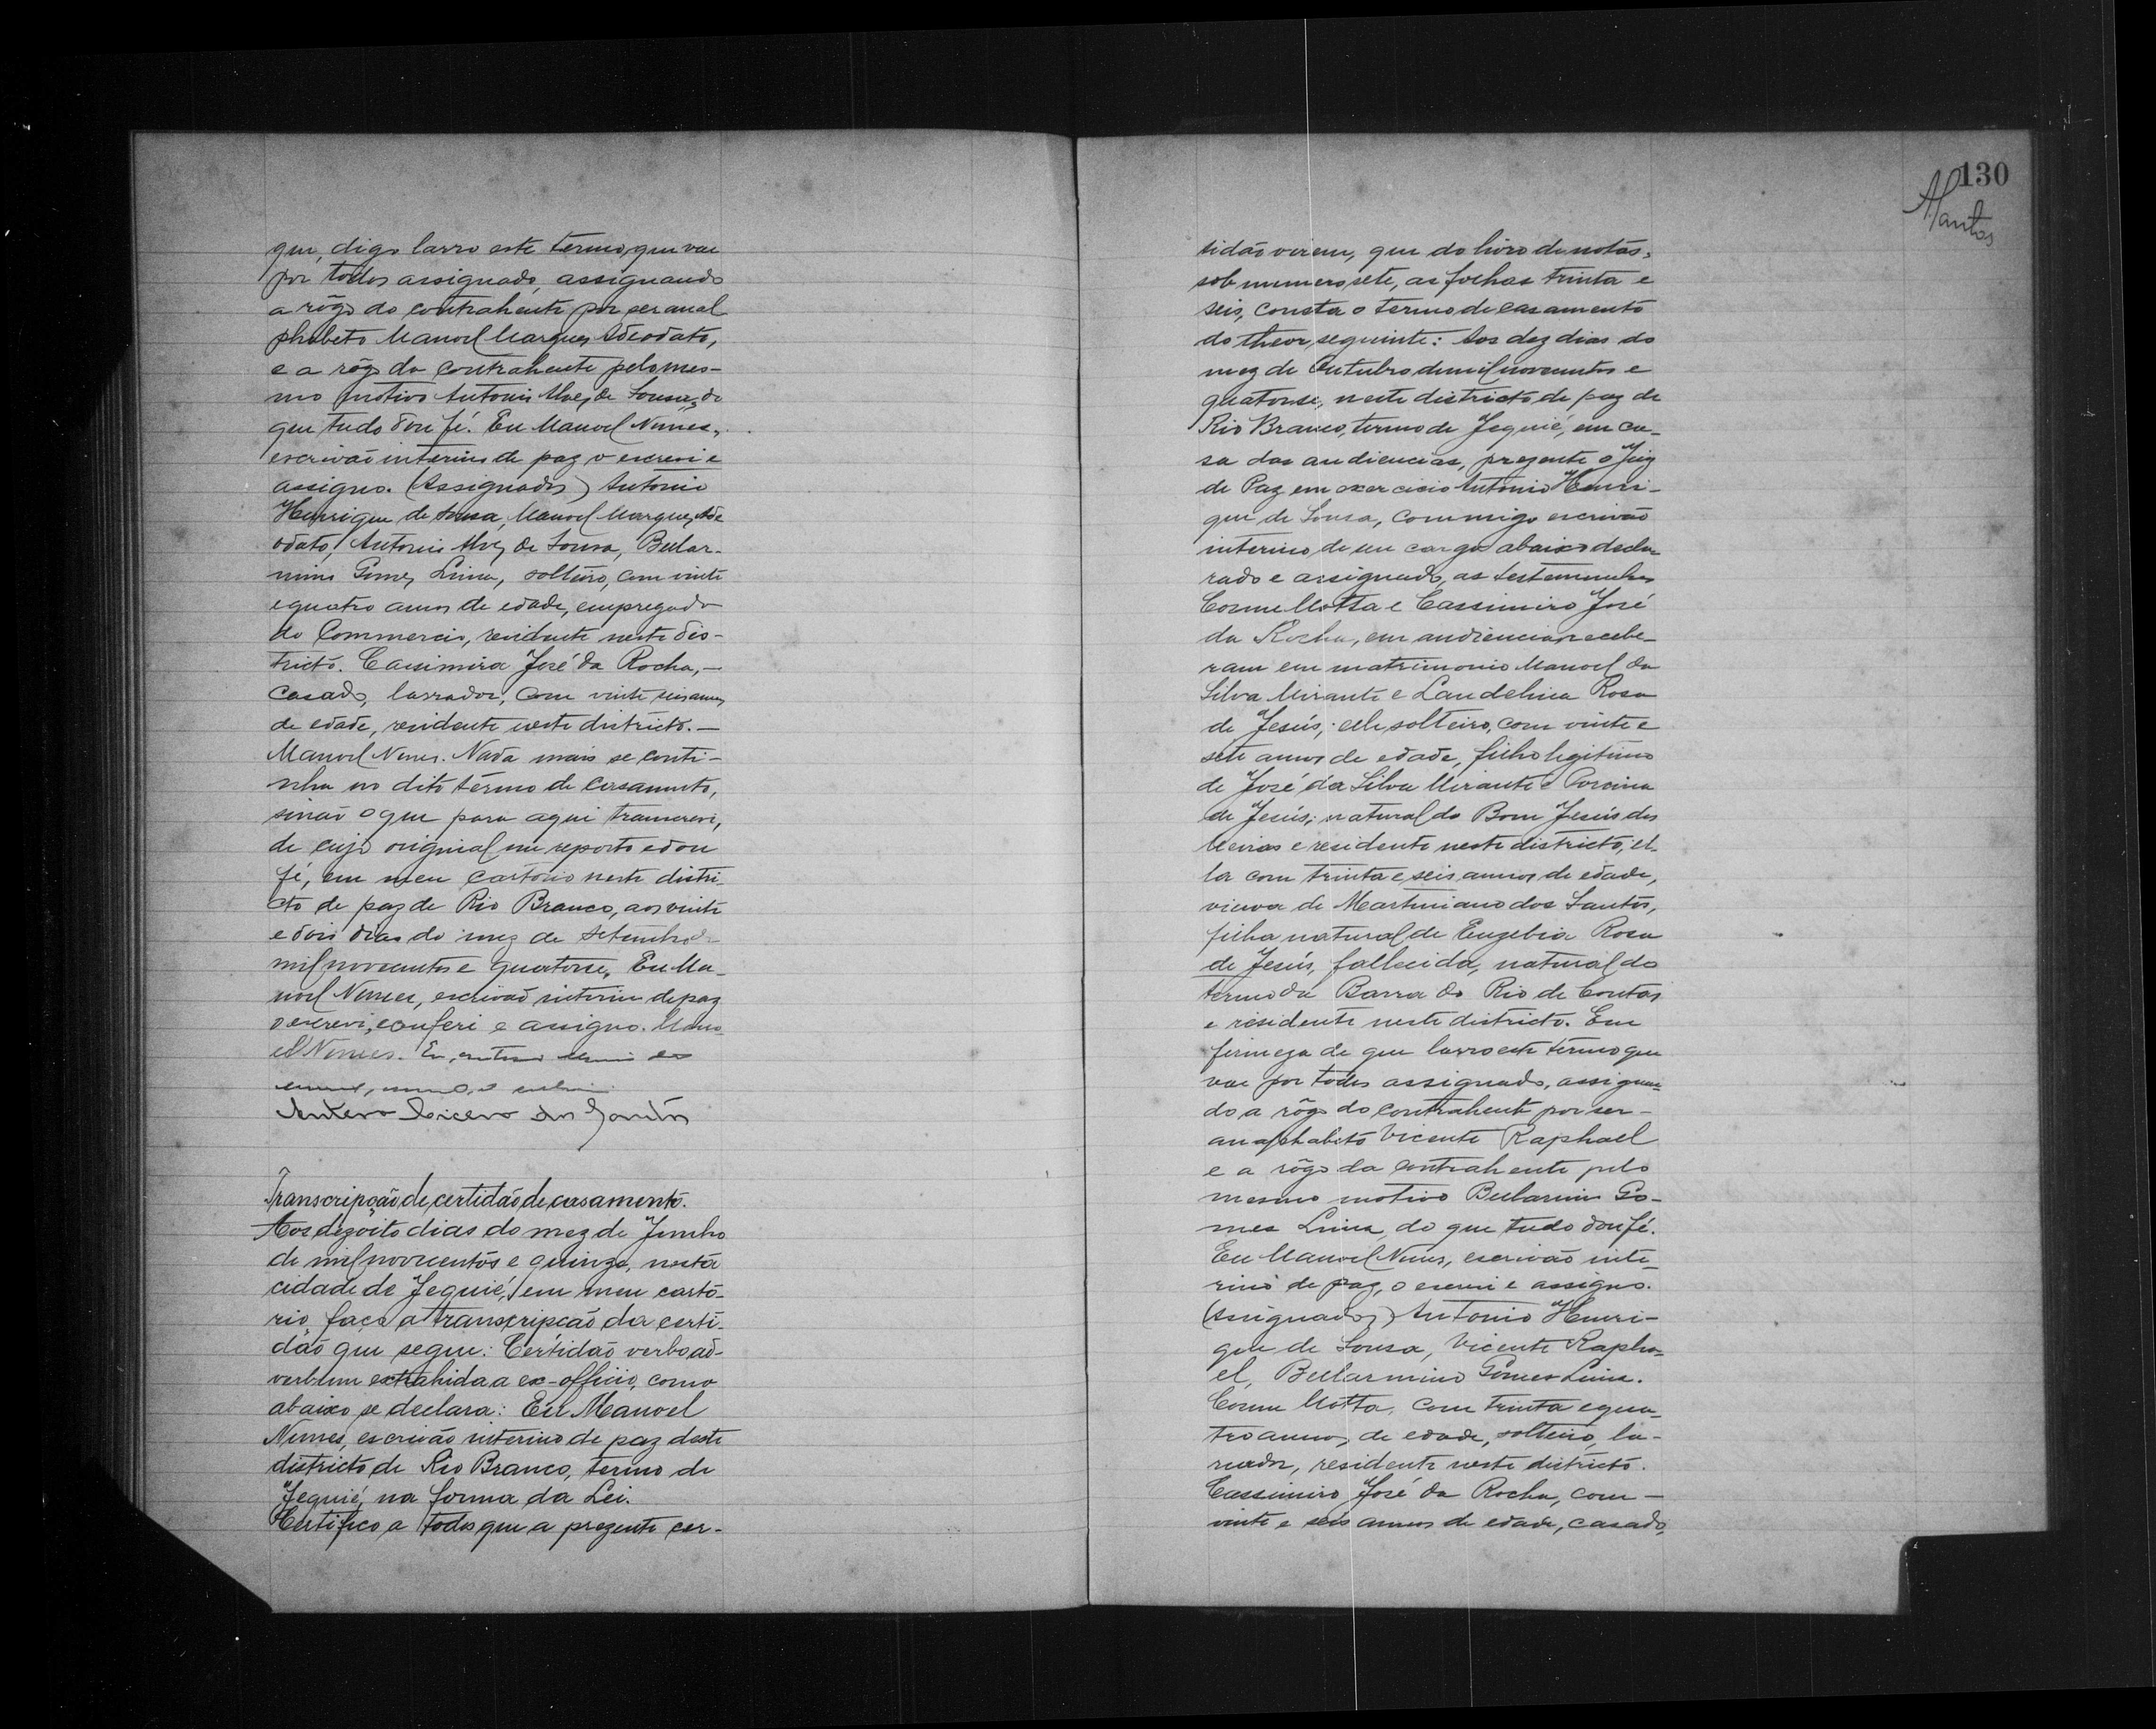 que, digo lavro este termo, que vae
por todos assignado, assignando
a rôgo do contrahente por ser anal
phabeto Manoel Marques Adeodato,
e a rôgo da contrahente pelo mes-
mo motivo Antonio Alves de Sousa, do
que tudo dou fé. Eu Manoel Nunes,
escrivão interino de paz o escrevi e
assigno. (Assignados) Antonio
Henrique de Sousa, Manoel Marques Ade
odato, Antonio Alves de Sousa, Bellar-
mino Gomes Lima, solteiro, com vinte
e quatro annos de edade, empregado
do Commercio, residente neste dis-
tricto. Cassimiro José da Rocha,-
casado, lavrador, com vinte seis annos
de edade, residente neste districto.-
Manoel Nunes. Nada mais se conti-
nha no dito têrmo de casamento,
sinão o que para aqui transcrevi,
de cujo original me reporto e dou
fé, em meu cartorio neste distri-
cto de paz de Rio Branco, aos vinte
e dois dias do mez de Setembro de
mil novecentos e quatorse. Eu Ma-
noel Nunes, escrivão interino de paz
o escrevi, conferi e assigno. Mano
el Nunes. Eu,
Antero Cicero dos Santos
Transcripção de certidão de casamento.
Aos dezoito dias do mez de Junho
de mil novecentos e quinze, nesta
cidade de Jequié, em meu cartó-
rio, faço a transcripção da certi-
dão que segue: Certidão verbo ad-
verbum extrahida a ex-officio, como
abaixo se declara: Eu Manoel
Nunes, escrivão interino de paz deste
districto de Rio Branco, termo de
Jequié, na forma da Lei.
Certifico a todos que a prezente cer-
130
Santos
tidão virem, que do livro de notas,
sob numero sete, as folhas trinta e
seis, consta o termo de casamento
do theor seguinte: Aos dez dias do
mez de Outubro de mil novecentos e
quatorse, neste districto de paz de
Rio Branco, termo de Jequié, em ca-
sa das audiencias, prezente o Juiz
de Paz em exercicio Antonio Henri-
que de Sousa, commigo escrivão
interino de seu cargo abaixo decla-
rado e assignado, as testemunhas
Cosme Motta e Cassimiro José
da Rocha, em audiencia recebe-
ram em matrimonio Manoel da
Silva Mirante e Laudelina Rosa
de Jesús; elle solteiro, com vinte e
sete annos de edade, filho legitimo
de José da Silva Mirante e Porcina
de Jesús; natural do Bom Jesús dos
Meiras e residente neste districto; el-
la com trinta e seis annos de edade,
viuva de Martiniano dos Santos,
filha natural de Euzebia Rosa
de Jesús, fallecida, natural do
termo da Barra do Rio de Contas
e residente neste districto. Em
firmeza de que lavro este têrmo que
vae por todos assignado, assignan-
do a rôgo do contrahente por ser-
analphabeto Vicente Raphael
e a rôgo da contrahente pelo
mesmo motivo Bellarmino Go-
mes Lima, do que tudo dou fé.
Eu Manoel Nunes, escrivão inte-
rino de paz, o escrevi e assigno.
(Assignados) Antonio Henri-
que de Sousa, Vicente Rapha-
el, Bellarmino Gomes Lima.
Cosme Motta, com trinta e qua-
tro annos, de edade, solteiro, la-
vrador, residente neste districto.
Cassimiro José da Rocha, com-
vinte e seis annos de edade, casado,